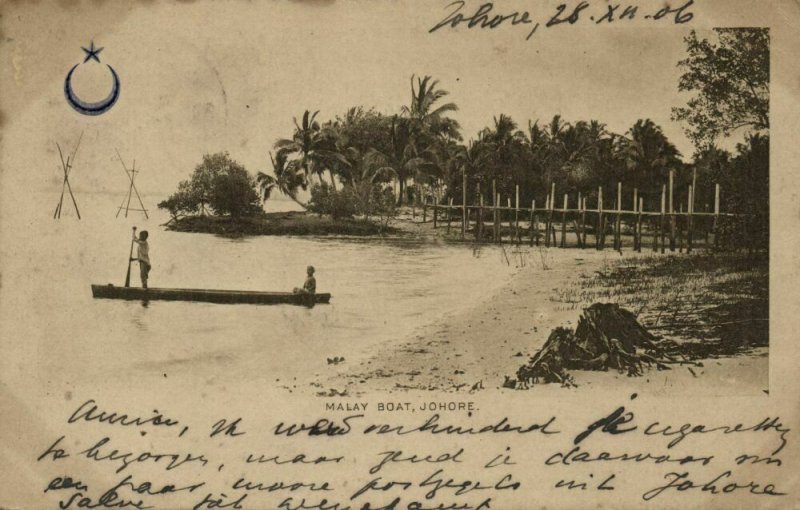 Johore, 28.XII.06
MALAY BOAT, JOHORE.
ik werd verhinderd je cigaretten
te bezorgen, maar zend je daarvoor nu
een paar mooie postzegels uit Johore
Salve tot